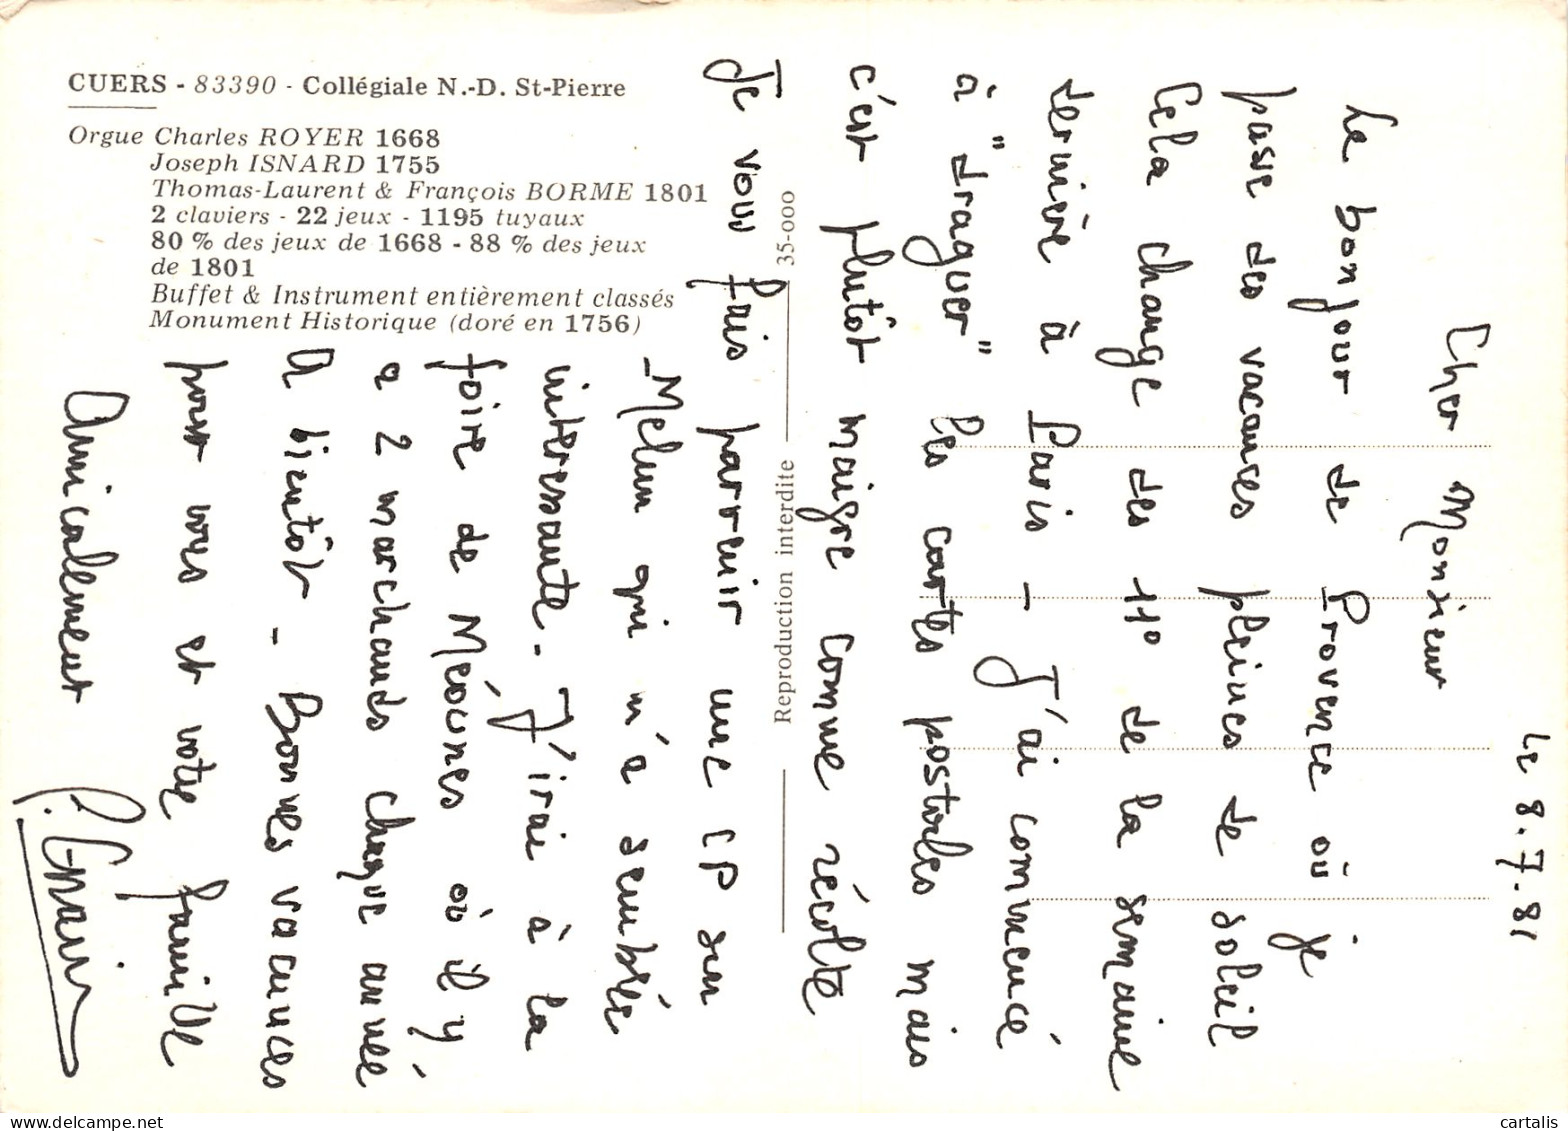 CUERS - 83390 - Collégiale N.-D. St-Pierre
Orgue Charles ROYER 1668
Joseph ISNARD 1755
Thomas-Laurent & François BORME 1801
2 claviers - 22 jeux - 1195 tuyaux
80 % des jeux de 1668 - 88 % des jeux
de 1801
Buffet & Instrument entièrement classés
Monument Historique (doré en 1756)
35-000
Reproduction interdite
Le 8.7.81
Cher Monsieur
Le bonjour de Provence où je
passe des vacances pleines de soleil
Cela change des 11° de la semaine
dernière à Paris - J'ai commencé
à "draguer" les cartes postales mais
c'est plutôt maigre comme récolte
Je vous fais parvenir une CP sur
-Melun qui m'a semblée
interessante - J'irai à la
foire de Méounes où il y
a 2 marchands chaque année
A bientôt - Bonnes vacances
pour vous et votre famille
Amicalement
cartalis